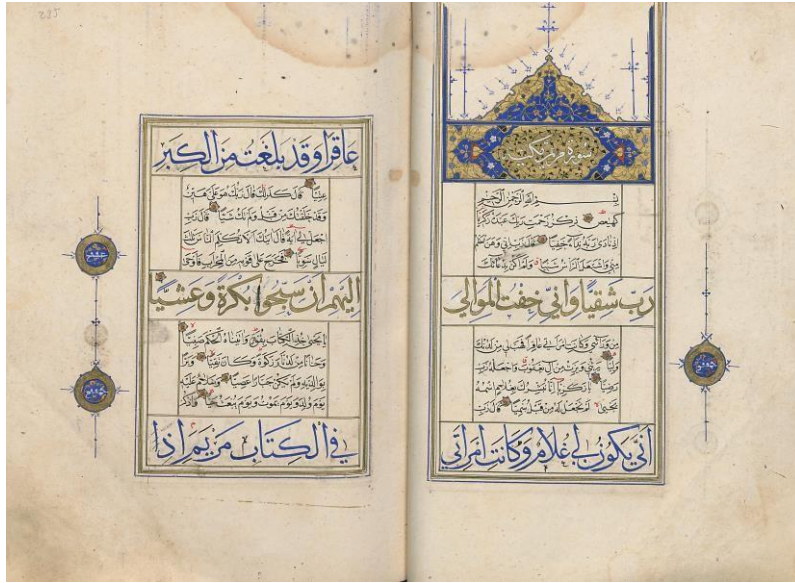 سورة مريم
بسم الله الرحمن الرحيم
كهيعص ذكر رحمت ربك عبده زكريا
اذ نادى ربه نداء خفيا قال رب اني وهن العظم
مني واشتعل الراس شيبا ولم اكن بدعائك
رَبِّ شَقِيًّا وَاِنِّي خِفْتُ الْمَوَالِيَ
من ورائي وكانت امراتي عاقرا فهب لي من لدنك
وليا يرثني ويرث من ال يعقوب واجعله رب
رضيا يا زكريا انا نبشرك بغلام اسمه
يحيى لم نجعل له من قبل سميا قال رب
اَنّى يَكُونُ لِي غُلَامٌ وَكَانَتِ امْرَاَتِي
عَاقِرًا وَقَدْ بَلَغْتُ مِنَ الْكِبَرِ
عتيا قال كذلك قال ربك هو علي هين
وقد خلقتك من قبل ولم تك شيئا قال رب
اجعل لي اية قال ايتك الا تكلم الناس ثلث
ليال سويا فخرج على قومه من المحراب فاوحى
اِلَيْهِمْ اَنْ سَبِّحُوا بُكْرَةً وَعَشِيًّا
يا يحيى خذ الكتاب بقوة واتيناه الحكم صبيا
وحنانا من لدنا وزكوة وكان تقيا وبرا
بوالديه ولم يكن جبارا عصيا وسلام عليه
يوم ولد ويوم يموت ويوم يبعث حيا واذكر
فِي الْكِتَابِ مَرْيَمَ اِذِ ا